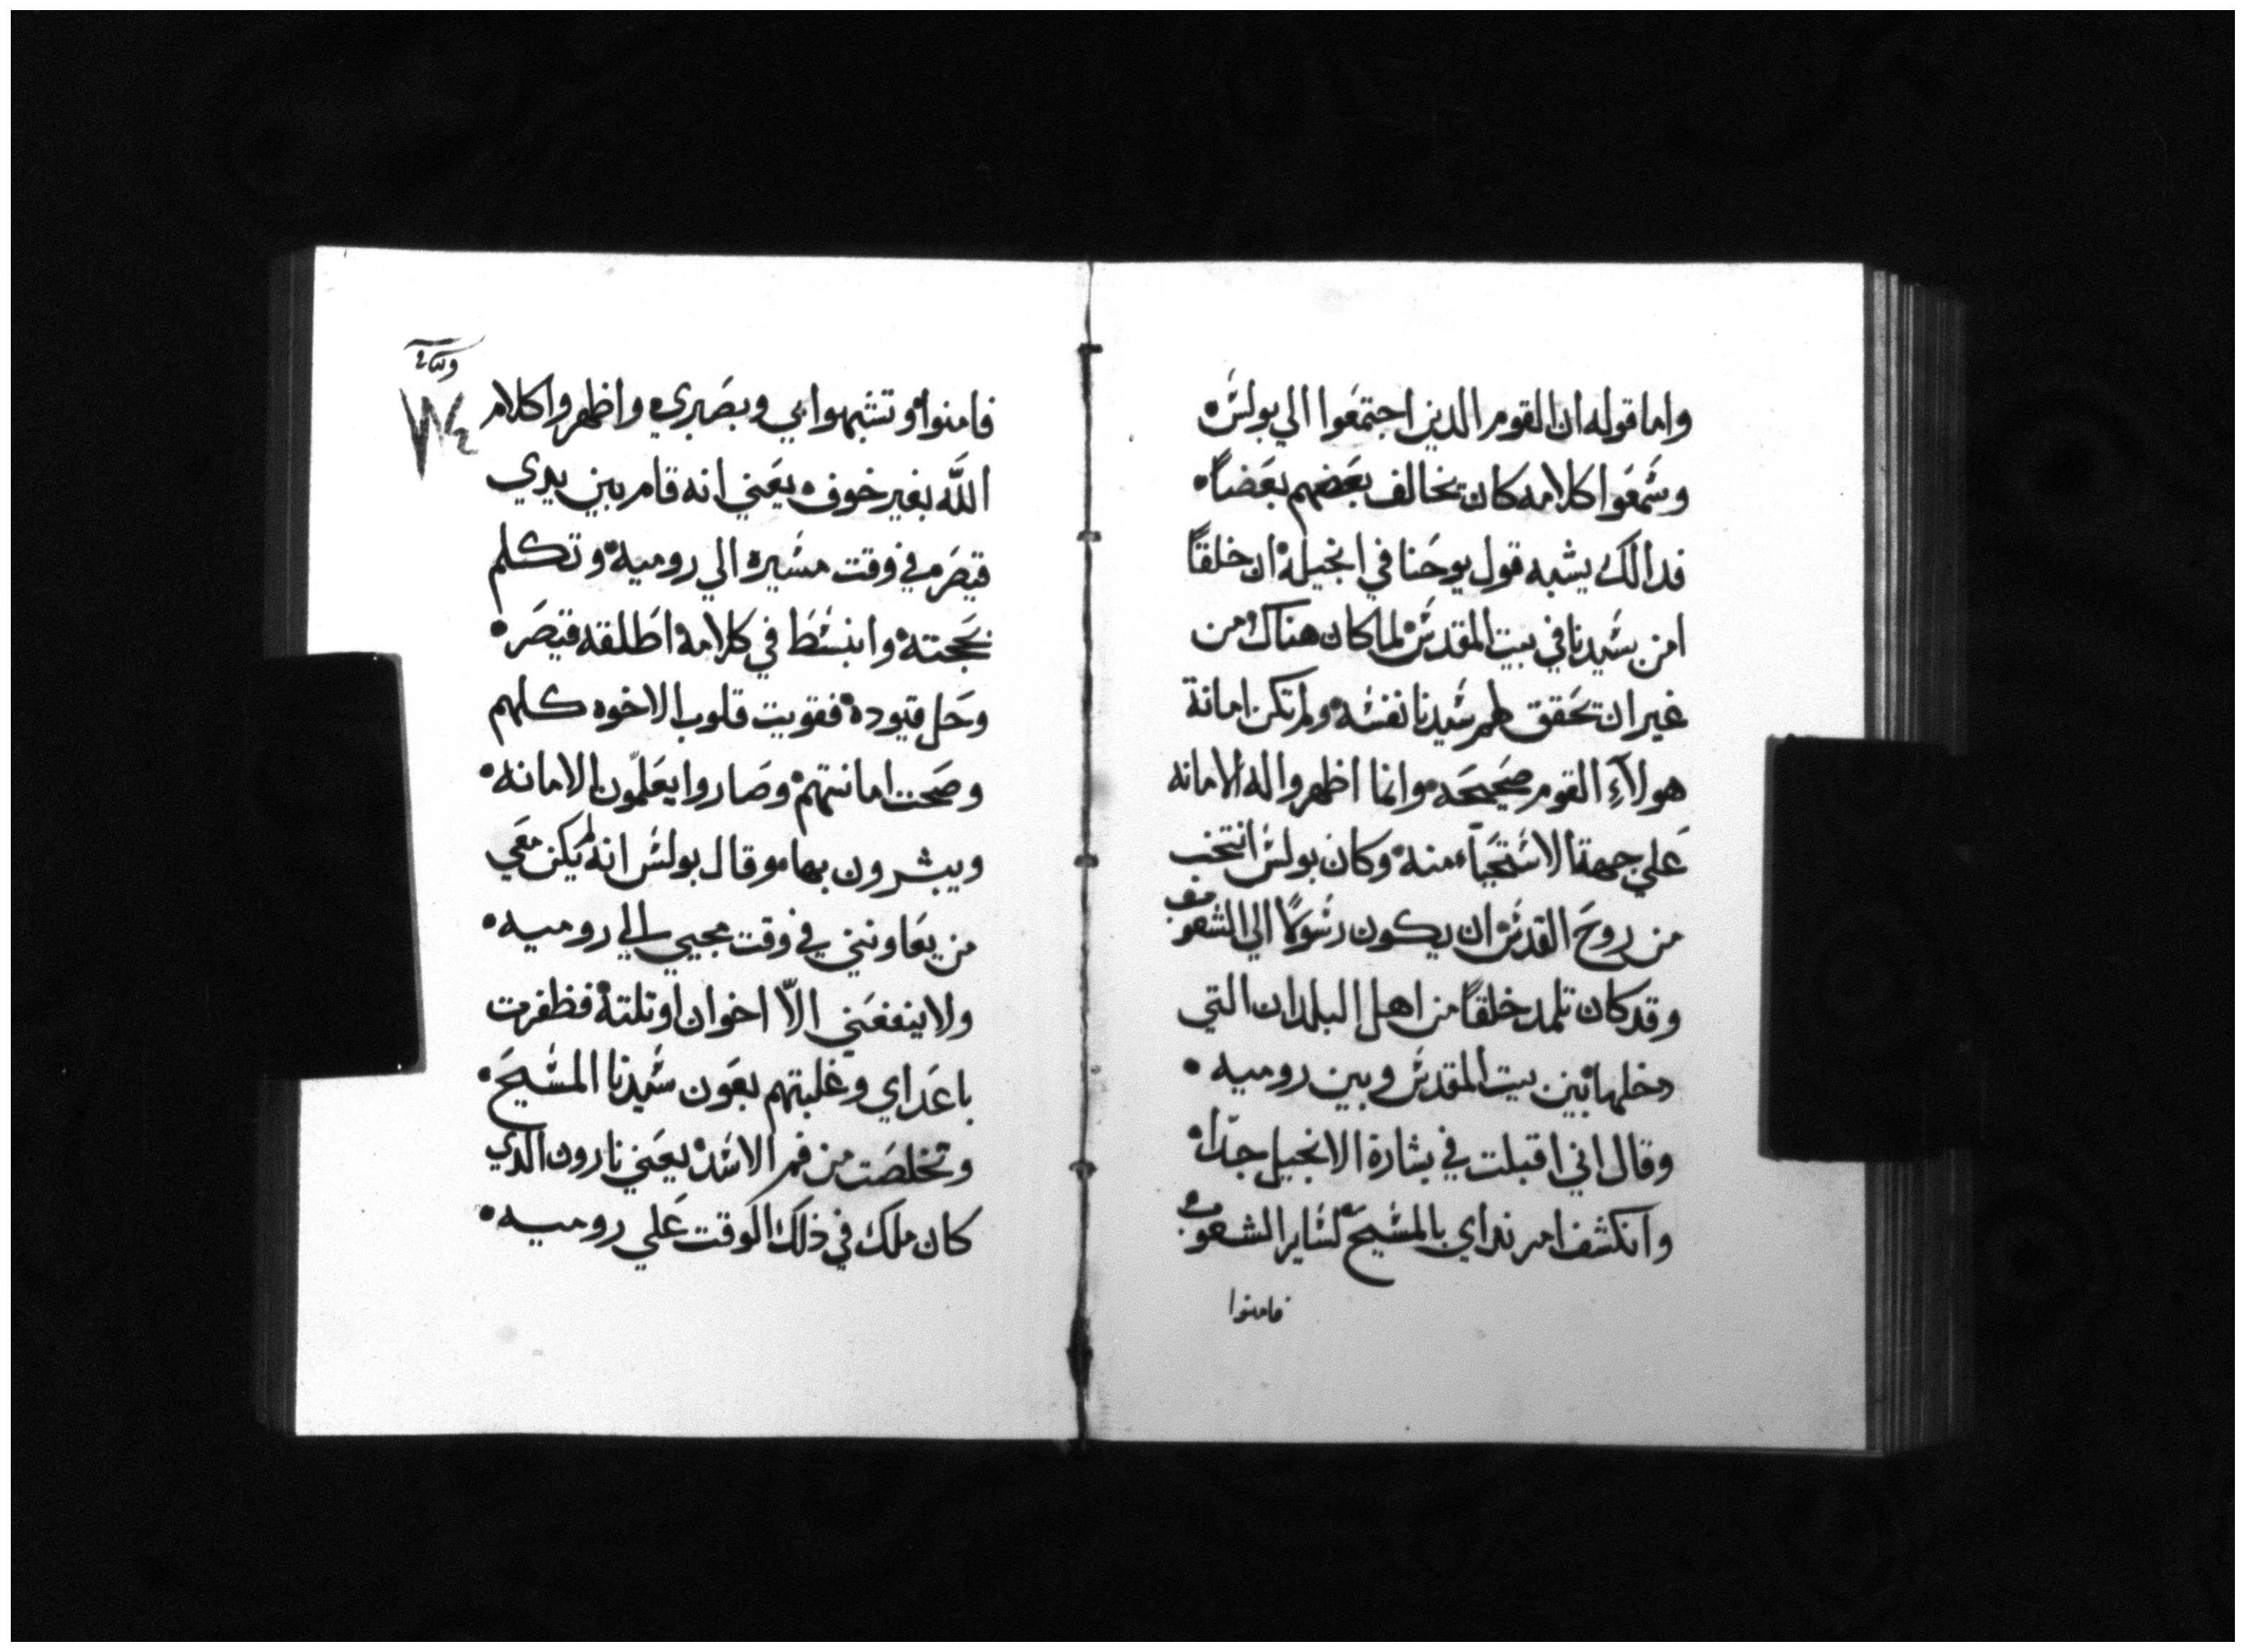 واما قوله ان القوم الدين اجتمعوا الي بولس
وسمعوا كلامه كان تخالف بعضهم بعضاً
فدالك يشبه قول يوحنا في انجيله ان خلقاً
امن بسيدنا في بيت المقدس لما كان هناك من
غير ان تحقق لهم سيدنا نفسه ولم تكن امانة
هولآءِ القوم صحيحه وانما اظهروا له الامانه
علي جهة الاستحياء منه وكان بولس انتخب
من روح القدس ان يكون رسولاً الي الشعوب
وقد كان تلمد خلقاً من اهل البلدان التي
دخلها بين بيت المقدس وبين روميه
وقال اني اقبلت في بشارة الانجيل جدّا
وانكشف امر نداي بالمسيح لساير الشعوب
فامنوا
فامنوا وتشبهوا بي وبصبري واظهروا كلام
اللّه بغير خوف يعني انه قام بين يدي
قيصر في وقت مسيره الي روميه وتكلم
بحجته وانبسط في كلامه اطلقه قيصر
وحل قيوده فقويت قلوب الاخوه كلهم
وصحت امانتهم وصاروا يعلّمون الامانه
ويبشرون بها وقال بولس انه لم يكن معي
من يعاونني في وقت مجيي الي روميه
ولا ينفعني الاّ اخوان او تلتة فظفرت
باعداي وغلبتهم بعون سيدنا المسيح
وتخلصت من فم الاسد يعني نارون الدي
كان ملك في ذلك الوقت علي روميه